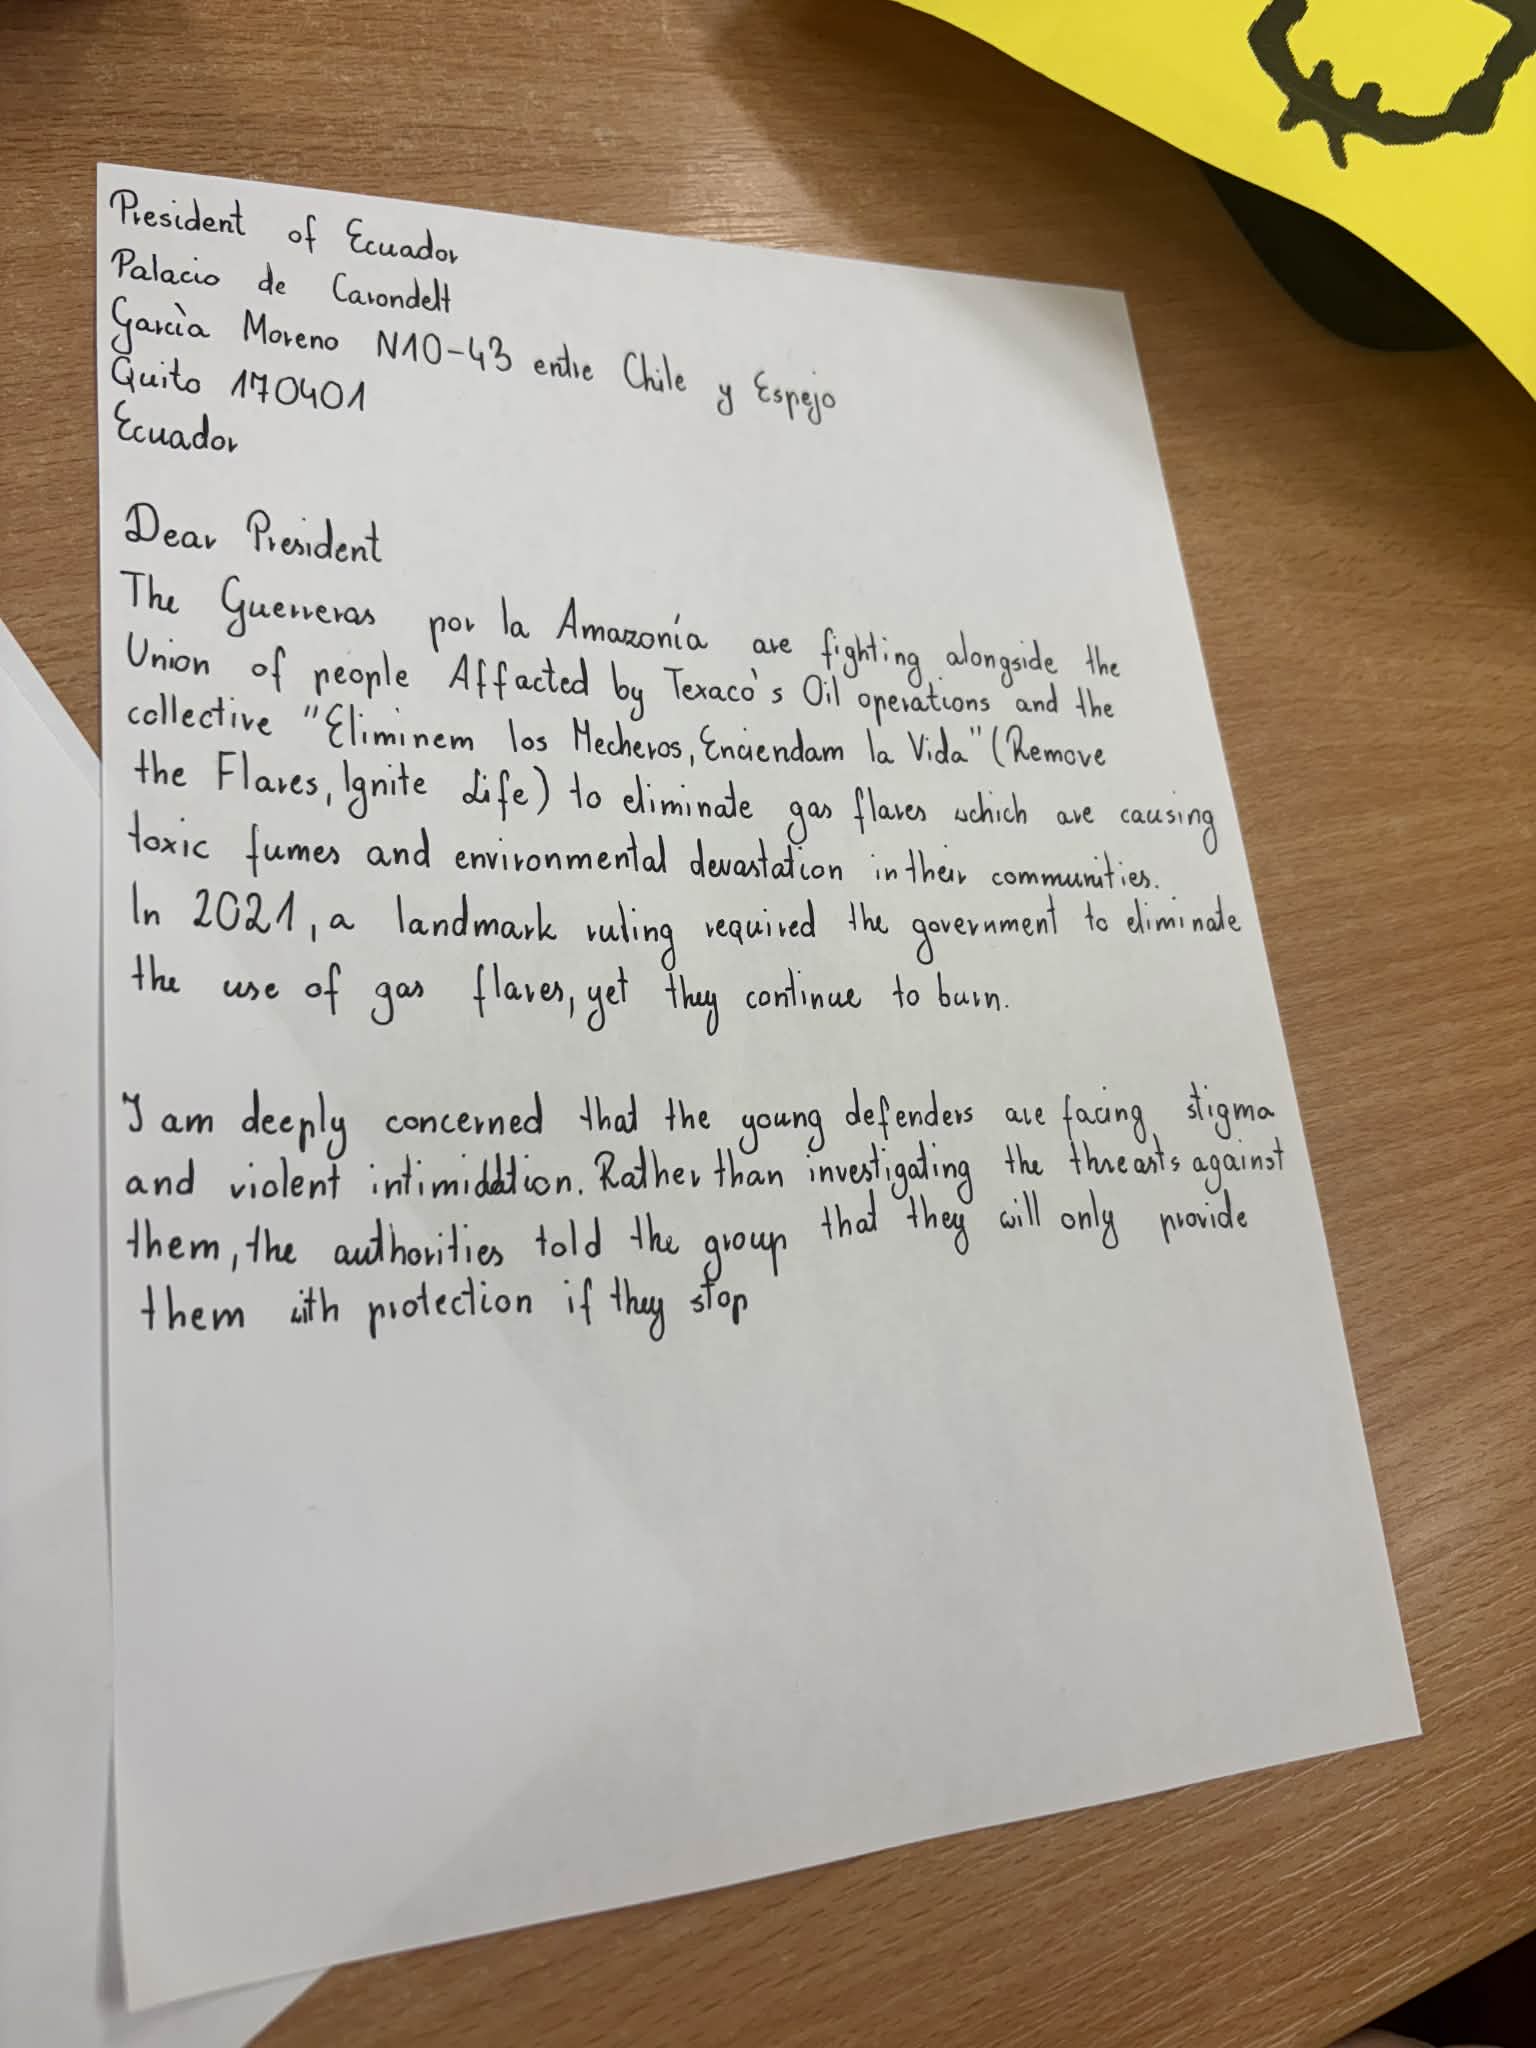 President of Ecuador
Palacio de Carondelt
Garcìa Moreno N10-43 entre Chile y Espejo
Quito 170401
Ecuador
Dear President
The Guerreras por la Amazonía are fighting alongside the
Union of people Affacted by Texaco's Oil operations and the
collective "Eliminem los Mecheros, Enciendam la Vida" (Remove
the Flares, Ignite Life) to eliminate gas flares which are causing
toxic fumes and environmental devastation in their communities.
In 2021, a landmark ruling required the government to eliminate
the use of gas flares, yet they continue to burn.
I am deeply concerned that the young defenders are facing stigma
and violent intimiddtion. Rather than investigating the threasts against
them, the authorities told the group that they will only provide
them with protection if they stop